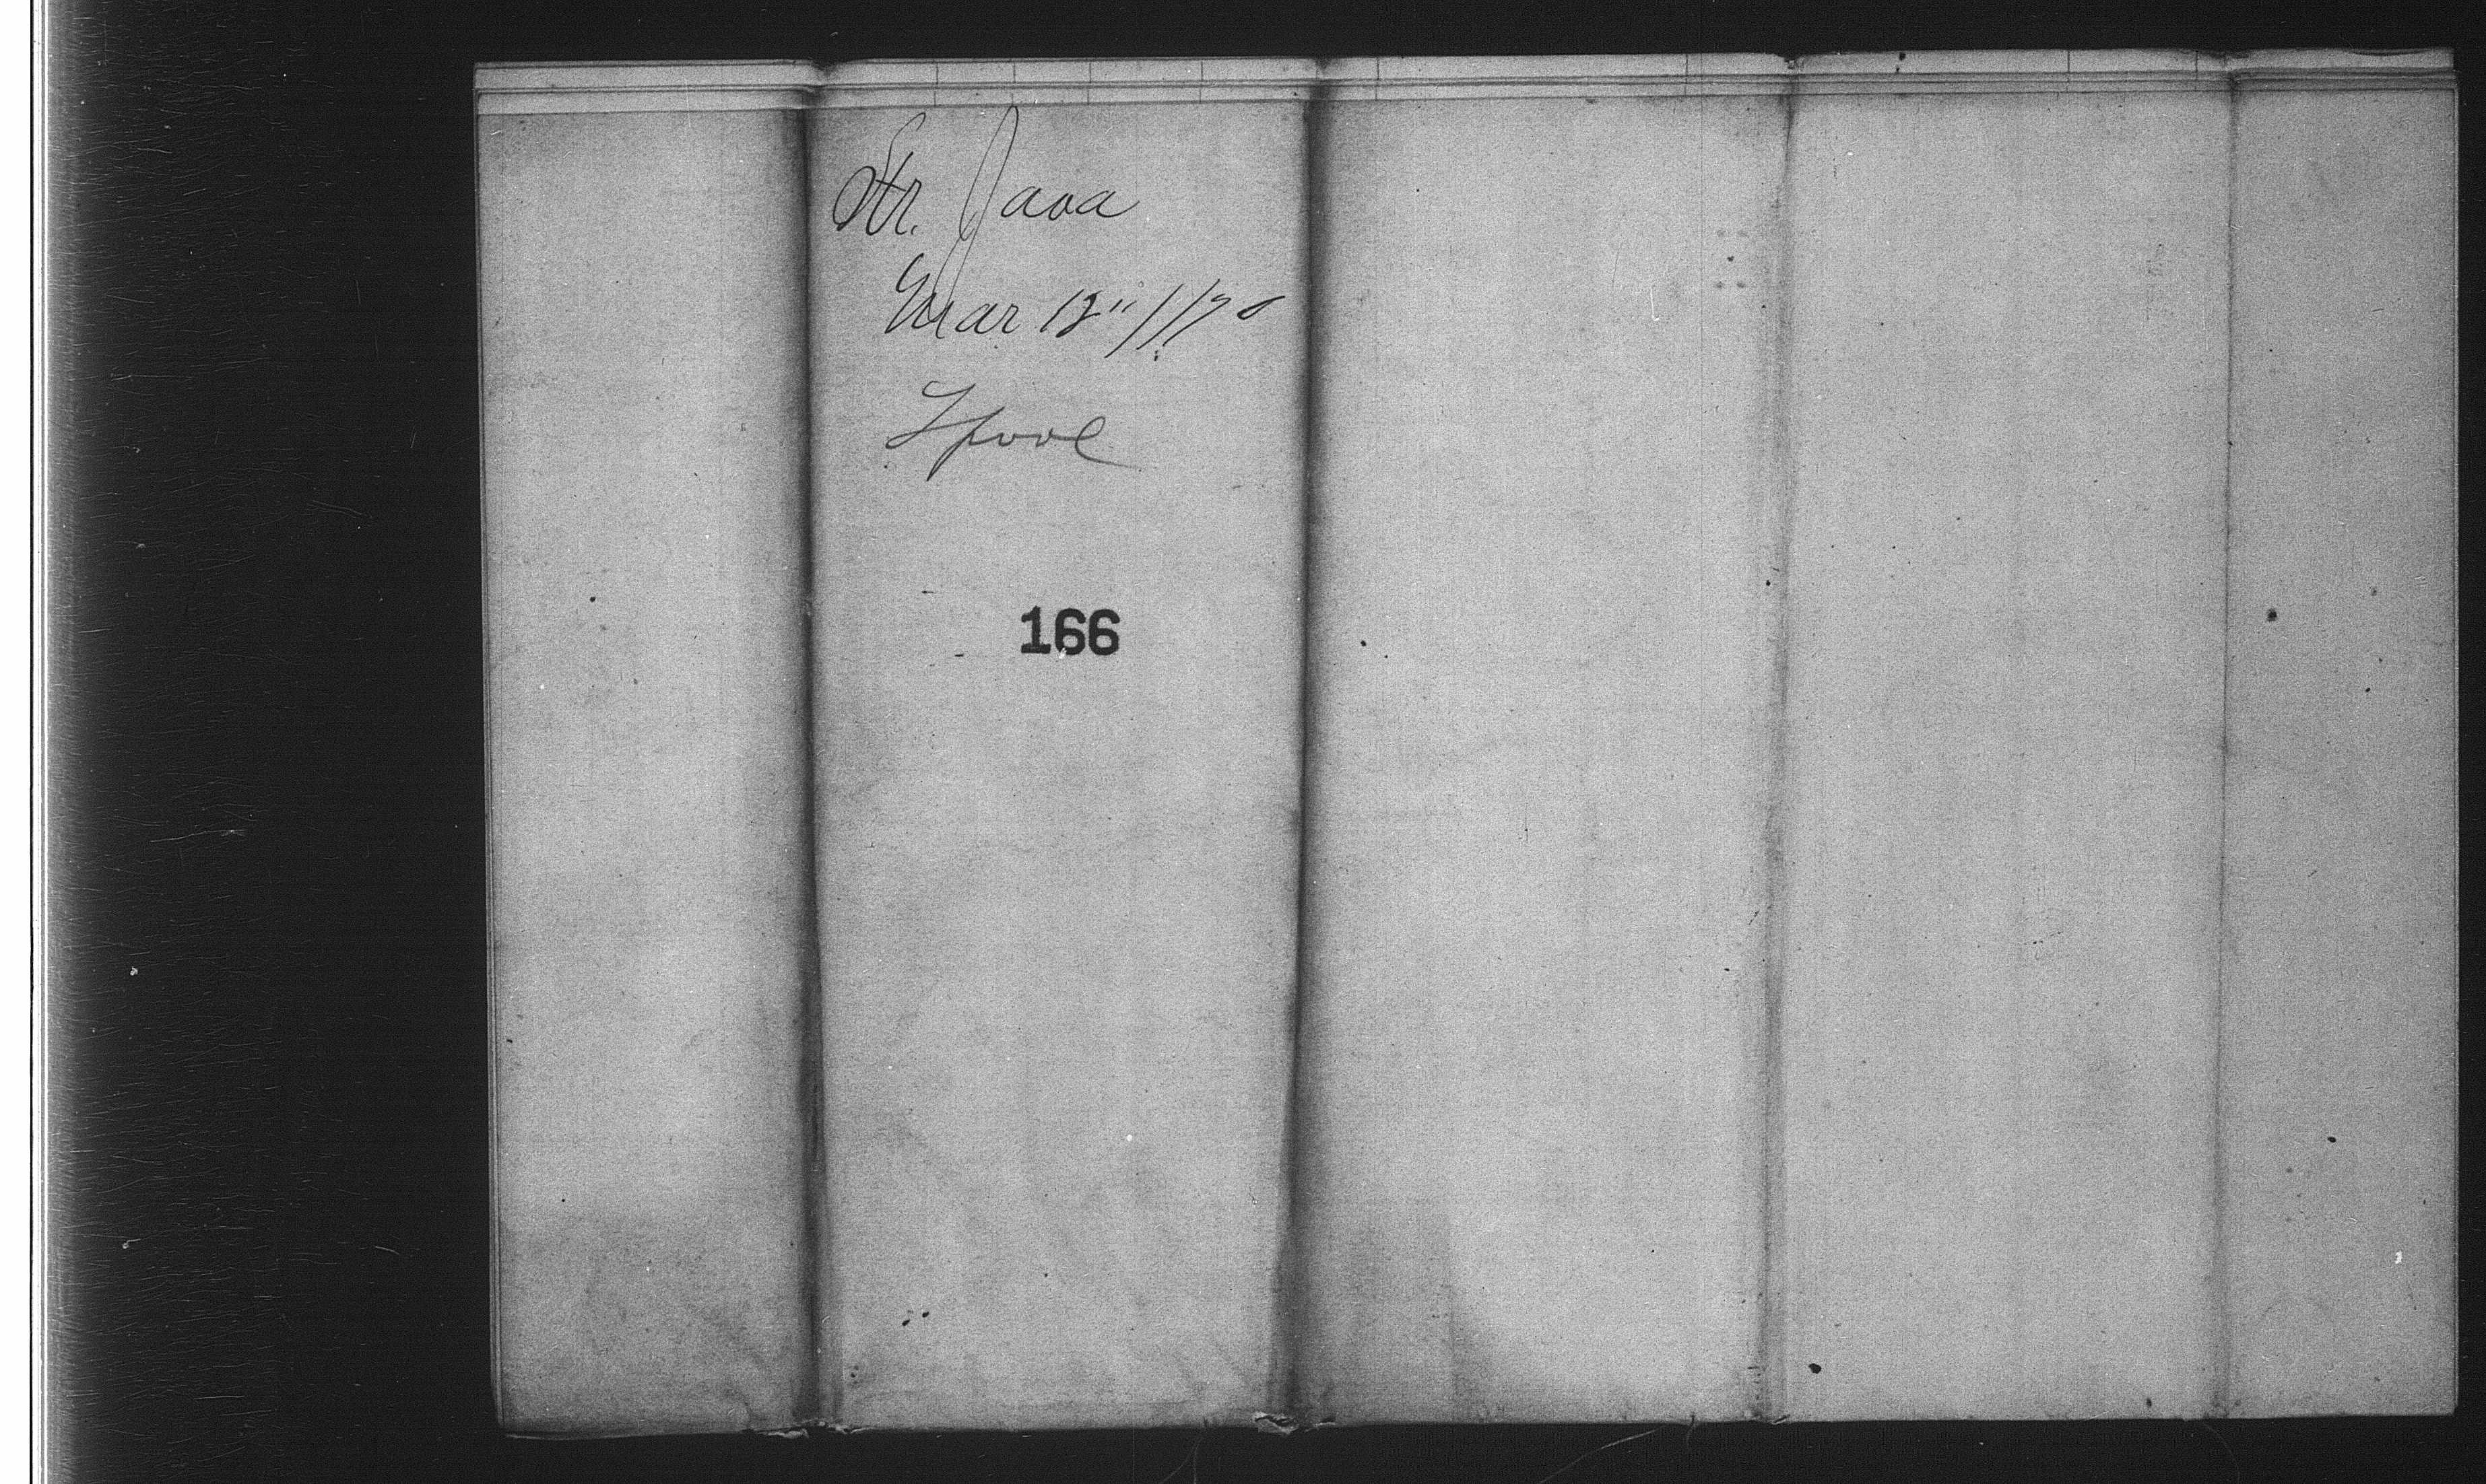 Str. Java
Mar 12" 1870
Lpool
166